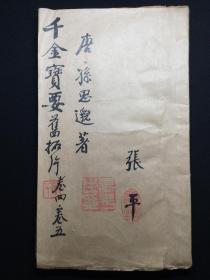 唐·孫思邈著
千金寶要舊拓片卷四卷五
張平